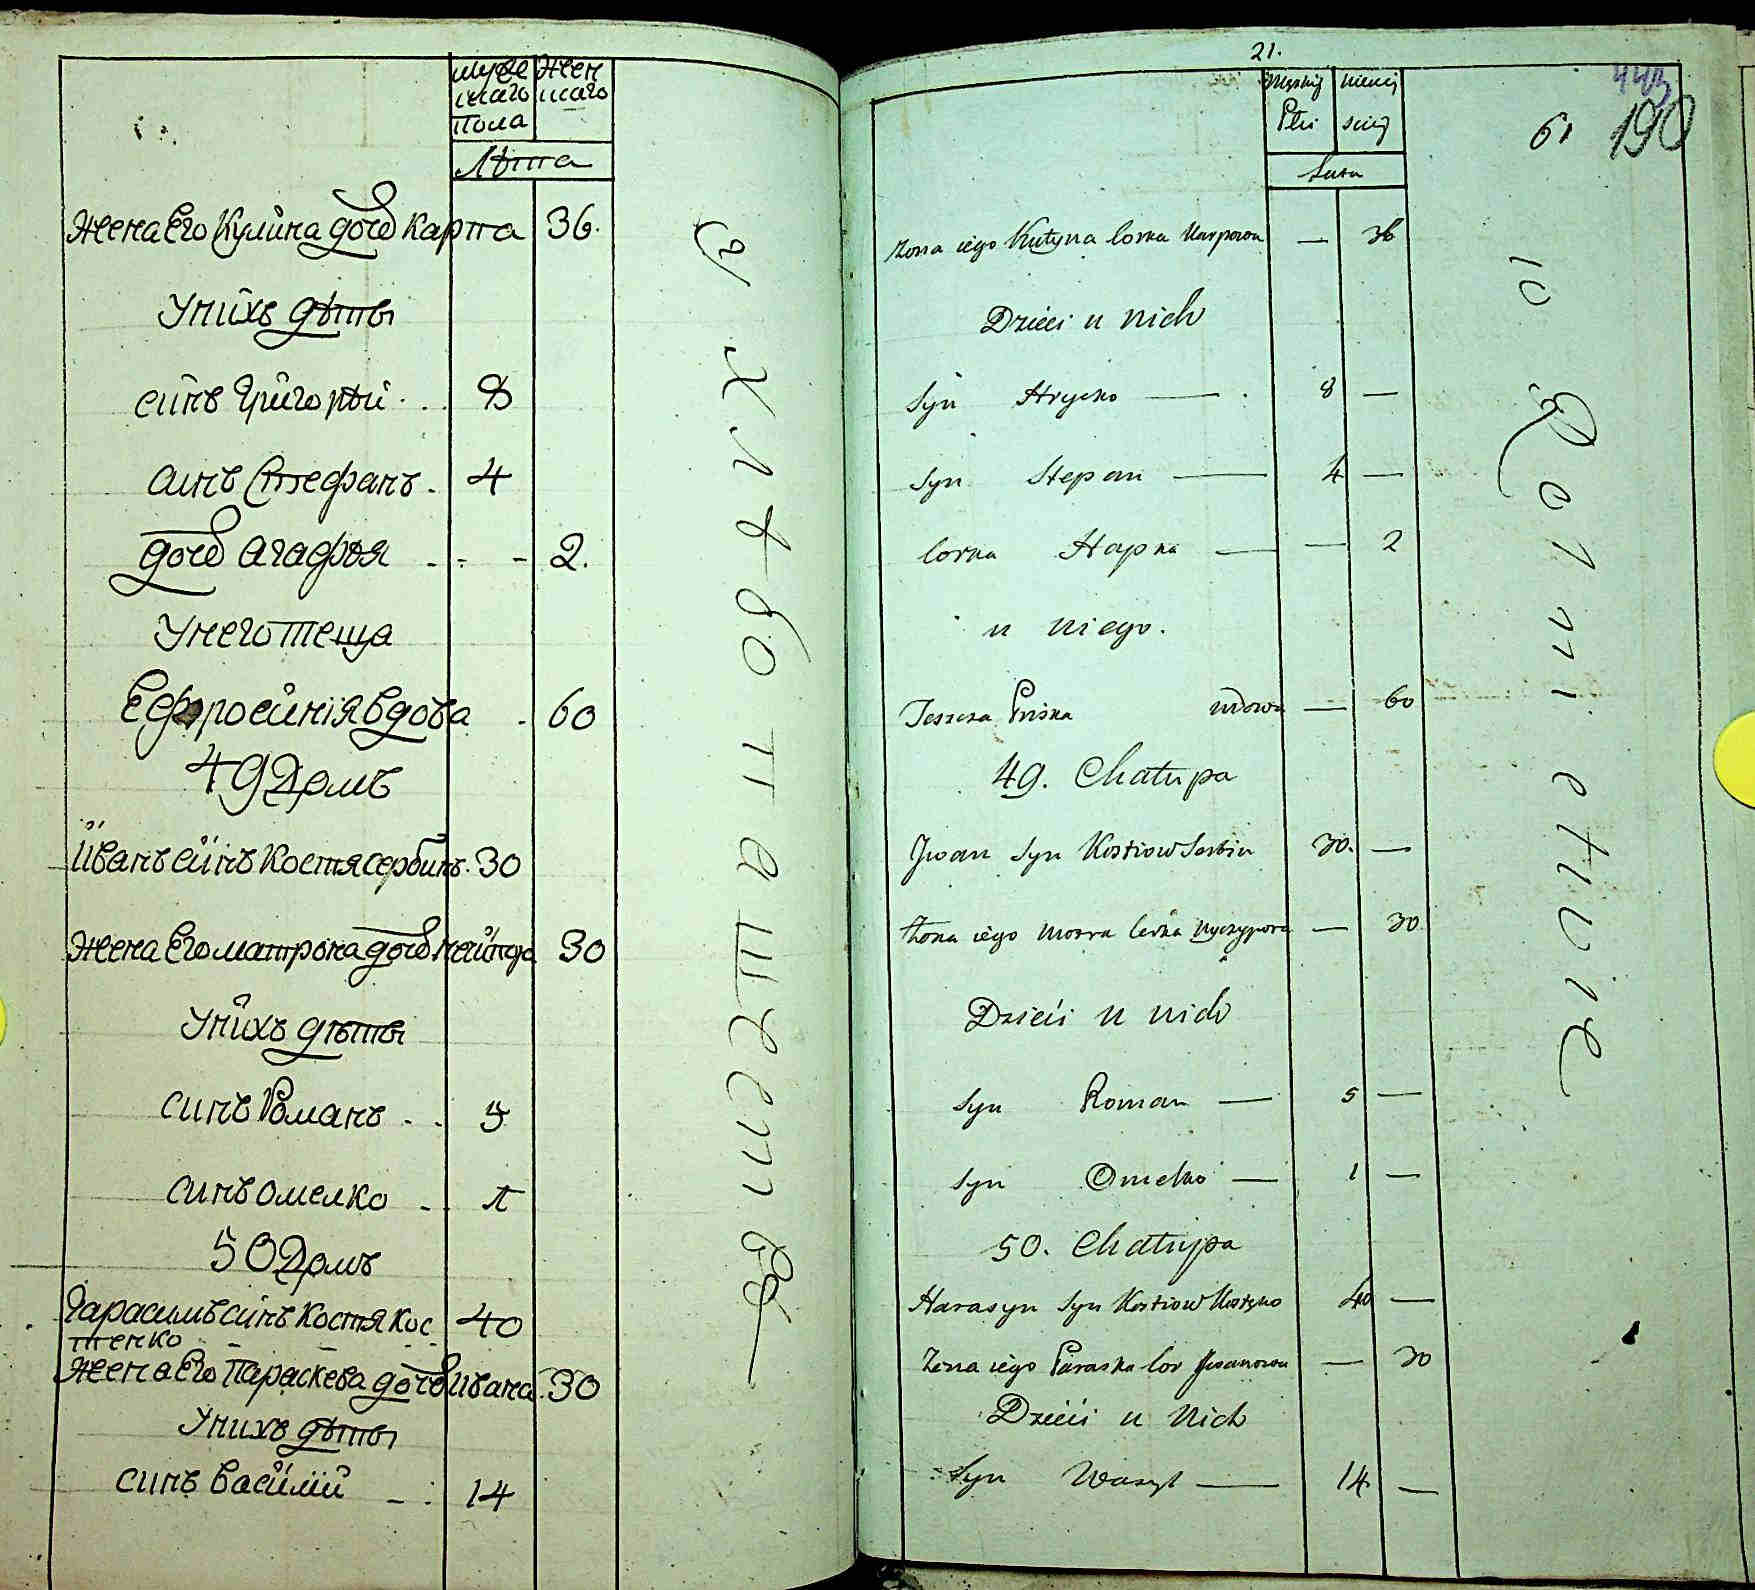 мужескаго Пола
женскаго
Лѣта
жена Его Кулина дочь Карпа 36.
У нихъ дѣты
синъ Григорїй 8
синъ Стефанъ 4
дочь агафїя 2.
У него теща
Ефросинїя вдова 60
49 Домъ
Иванъ синъ Костя сербинъ 30
жена Его матрона дочь 30
У нихъ дѣты
синъ Романъ 5
синъ омелко 1
50 Домъ
Гарасимъ синъ Костя Кос
тенко 40
жена Его Параскева дочь Ивана 30
У нихъ дѣты
синъ василїй 14
У хлѣбопашенствѣ
21.
443
61 190
Męskiej Płci
Lata
żona iego Kulyna corka Karpowa — 36
Dzieci u nich
Syn Hrycko — 8 —
Syn Stepan — 4 —
Corka Hapka — — 2
u niego.
Teszcza Pryska wdowa — 60
49. Chałupa
Jwan Syn Kostiow Serbin 30. —
żona iego Motra Corka — 30
Dzieci u nich
Syn Roman — 5 —
Syn Omelko — 1 —
50. Chałupa
Harasym Syn Kostiow Kostenko 40 —
żona iego Paraska Cor Jwanowa — 30
Dzieci u Nich
Syn Wasyl — 14 —
10 Rolnictwie